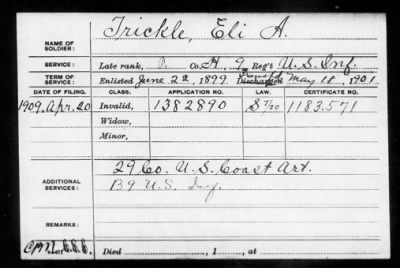 Trickle, Eli A.
NAME OF SOLDIER:
SERVICE: Late rank, P. Co. H, 9 Reg't U.S. Inf.
TERM OF SERVICE: Enlisted June 22, 1899 Transf'd Discharged May 18, 1901
DATE OF FILING. CLASS. APPLICATION NO. LAW. CERTIFICATE NO.
1909, Apr. 20 Invalid, 1382890 1183.571
Widow,
Minor,
ADDITIONAL SERVICES: 29 Co. U.S. Coast Art.
B 9 U.S. Inf.
REMARKS:
Died , 1 , at